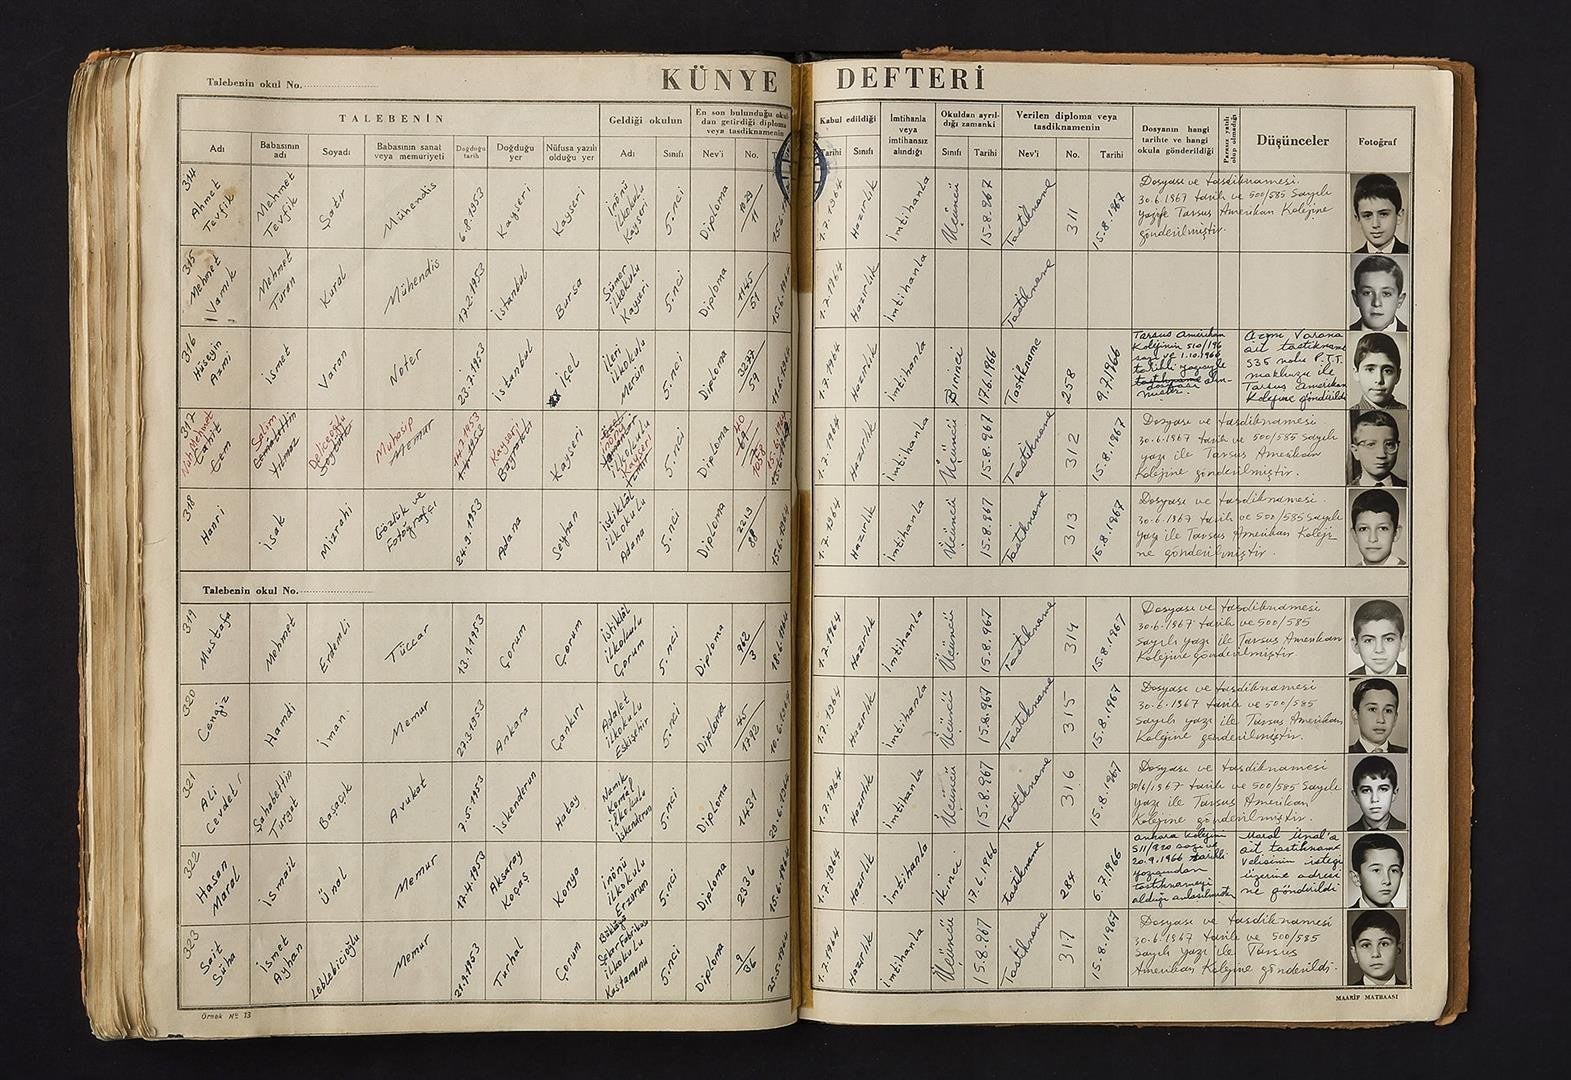 Talebenin okul No.
KÜNYE DEFTERİ
TALEBENİN
Geldiği okulun
En son bulunduğu okuldan getirdiği diploma veya tasdiknamenin
Kabul edildiği
İmtihanla veya imtihansız alındığı
Okuldan ayrıldığı zamanki
Verilen diploma veya tasdiknamenin
Dosyanın hangi tarihte ve hangi okula gönderildiği
Parasız yatılı olup olmadığı
Düşünceler
Fotoğraf
Adı
Babasının adı
Soyadı
Babasının sanat veya memuriyeti
Doğduğu tarih
Doğduğu yer
Nüfusa yazılı olduğu yer
Adı
Sınıfı
Nev'i
No.
Tarihi
Sınıfı
Sınıfı
Tarihi
Nev'i
No.
Tarihi
314 Ahmet Tevfik
Mehmet Tevfik
Şatır
Mühendis
6.8.1953
Kayseri
Kayseri
İnönü ilkokulu Kayseri
5.nci
Diploma
1029/11
1.7.1964
Hazırlık
İmtihanla
Üçüncü
15.8.967
Tastikname
311
15.8.1967
Dosyası ve tasdiknamesi.
30.6.1967 tarih ve 500/585 Sayılı
yazı ile Tarsus Amerikan Kolejine
gönderilmiştir.
315 Mehmet Vamık
Mehmet Turan
Kural
Mühendis
17.2.1953
İstanbul
Bursa
Sümer ilkokulu Kayseri
5.nci
Diploma
1145/51
1.7.1964
Hazırlık
İmtihanla
Tastikname
316 Hüseyin Azmi
İsmet
Varan
Noter
23.7.1953
İstanbul
İçel
İleri ilkokulu Mersin
5.nci
Diploma
3277/59
1.7.1964
Hazırlık
İmtihanla
Birinci
17.6.1966
Tastikname
258
9.7.1966
Tarsus Amerikan
Kolejinin 510/196
sayı ve 1.10.1966
tarihli yazısıyle
Azmi Varana
ait tastikname
535 nolu P.T.T.
makbuzu ile
Tarsus Amerikan
Kolejine gönderildi
317 Mehmet Cahit Cem
Selim
Yılmaz
Muhasip Memur
Kayseri
Kayseri
ilkokulu
Kayseri
5.nci
Diploma
1.7.1964
Hazırlık
İmtihanla
Üçüncü
15.8.967
Tastikname
312
15.8.1967
Dosyası ve tasdiknamesi
30.6.1967 tarih ve 500/585 Sayılı
yazı ile Tarsus Amerikan
Kolejine gönderilmiştir.
318 Hanri
İsak
Mizrahi
Gözlük ve Fotoğrafcı
24.9.1953
Adana
Seyhan
İstiklâl ilkokulu Adana
5.nci
Diploma
2219/88
15.6.1964
1.7.1964
Hazırlık
İmtihanla
Üçüncü
15.8.967
Tastikname
313
15.8.1967
Dosyası ve tasdiknamesi.
30.6.1967 tarih ve 500/585 Sayılı
yazı ile Tarsus Amerikan Koleji-
ne gönderilmiştir.
Talebenin okul No.
319 Mustafa
Mehmet
Erdemli
Tüccar
13.1.1953
Çorum
Çorum
İstiklâl ilkokulu Çorum
5.nci
Diploma
962/3
18.6.1964
1.7.1964
Hazırlık
İmtihanla
Üçüncü
15.8.967
Tastikname
314
15.8.1967
Dosyası ve tasdiknamesi
30.6.1967 tarih ve 500/585
Sayılı yazı ile Tarsus Amerikan
Kolejine gönderilmiştir
320 Cengiz
Hamdi
İman
Memur
27.3.1953
Ankara
Çankırı
Adalet ilkokulu Eskişehir
5.nci
Diploma
45/1792
1.7.1964
Hazırlık
İmtihanla
Üçüncü
15.8.967
Tastikname
315
15.8.1967
Dosyası ve tasdiknamesi
30.6.1967 tarih ve 500/585
Sayılı yazı ile Tarsus Amerikan
Kolejine gönderilmiştir.
321 Ali Cevdet
Şahabettin Turgut
Başaçık
Avukat
7.5.1953
İskenderun
Hatay
Namık Kemal ilkokulu İskenderun
5.nci
Diploma
1431
29.6.1964
1.7.1964
Hazırlık
İmtihanla
Üçüncü
15.8.967
Tastikname
316
15.8.1967
Dosyası ve tasdiknamesi
30/6/1967 tarih ve 500/585 Sayılı
yazı ile Tarsus Amerikan
Kolejine gönderilmiştir.
322 Hasan Maral
İsmail
Ünal
Memur
17.4.1953
Aksaray Koçaş
Konya
İnönü ilkokulu Erzurum
5.nci
Diploma
2336
15.6.1964
1.7.1964
Hazırlık
İmtihanla
İkinci
17.6.1966
Tastikname
284
6.7.1966
Ankara Kolejinin
511/920 sayı ve
20.9.1966 tarihli
yazısından
tastiknameyi
aldığı anlaşılmıştır
Maral Ünal'a
ait tastikname
velisinin isteği
üzerine adresi
ne gönderildi
323 Sait Süha
İsmet Ayhan
Leblebicioğlu
Memur
21.9.1953
Turhal
Çorum
Şeker Fabrikası ilkokulu Kastamonu
5.nci
Diploma
9/36
25.5.1964
1.7.1964
Hazırlık
İmtihanla
Üçüncü
15.8.967
Tastikname
317
15.8.1967
Dosyası ve tasdiknamesi
30.6.1967 tarih ve 500/585
sayılı yazı ile Tarsus
Amerikan Kolejine gönderildi.
Örnek No 13
MAARİF MATBAASI